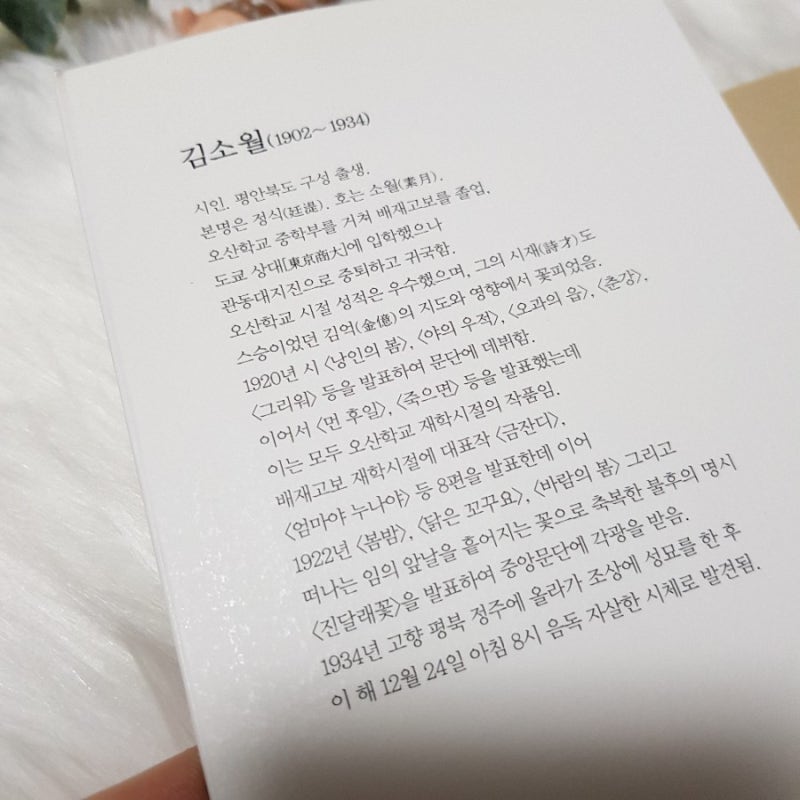 김소월(1902~1934)
시인. 평안북도 구성 출생.
본명은 정식(廷湜). 호는 소월(素月).
오산학교 중학부를 거쳐 배재고보를 졸업.
도쿄 상대[東京商大]에 입학했으나
관동대지진으로 중퇴하고 귀국함.
오산학교 시절 성적은 우수했으며, 그의 시재(詩才)도
스승이었던 김억(金億)의 지도와 영향에서 꽃피었음.
1920년 시 〈낭인의 봄〉, 〈야의 우적〉, 〈오과의 읍〉, 〈춘강〉,
〈그리워〉 등을 발표하여 문단에 데뷔함.
이어서 〈먼 후일〉, 〈죽으면〉 등을 발표했는데
이는 모두 오산학교 재학시절의 작품임.
배재고보 재학시절에 대표작 〈금잔디〉,
〈엄마야 누나야〉 등 8편을 발표한데 이어
1922년 〈봄밤〉, 〈닭은 꼬꾸요〉, 〈바람의 봄〉 그리고
떠나는 임의 앞날을 흩어지는 꽃으로 축복한 불후의 명시
〈진달래꽃〉을 발표하여 중앙문단에 각광을 받음.
1934년 고향 평북 정주에 올라가 조상에 성묘를 한 후
이 해 12월 24일 아침 8시 음독 자살한 시체로 발견됨.